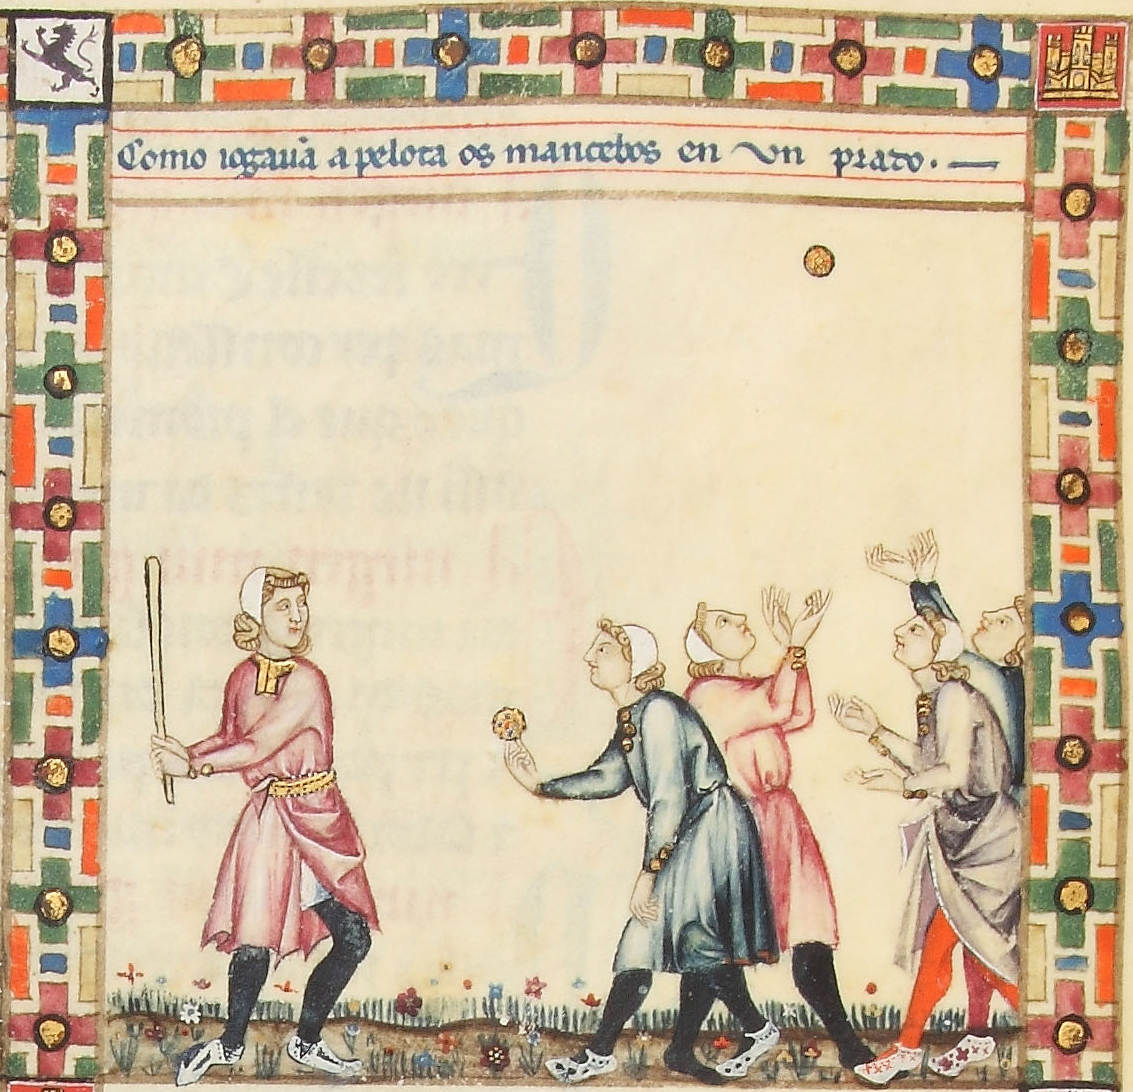 Como iogauã a pelota os mancebos en vn prado.